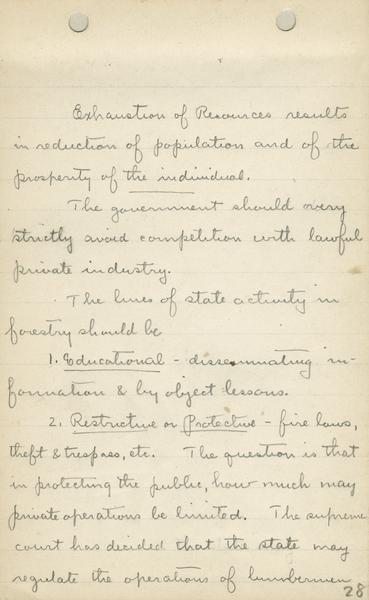 Exhaustion of Resources results
in reduction of population and of the
prosperity of the individual.
The government should very
strictly avoid competition with lawful
private industry.
The lines of state activity in
forestry should be
1. Educational - disseminating in-
formation & by object lessons.
2. Restrictive or Protective - fire laws,
theft & trespass, etc. The question is that
in protecting the public, how much may
private operations be limited. The supreme
court has decided that the state may
regulate the operations of lumbermen
28